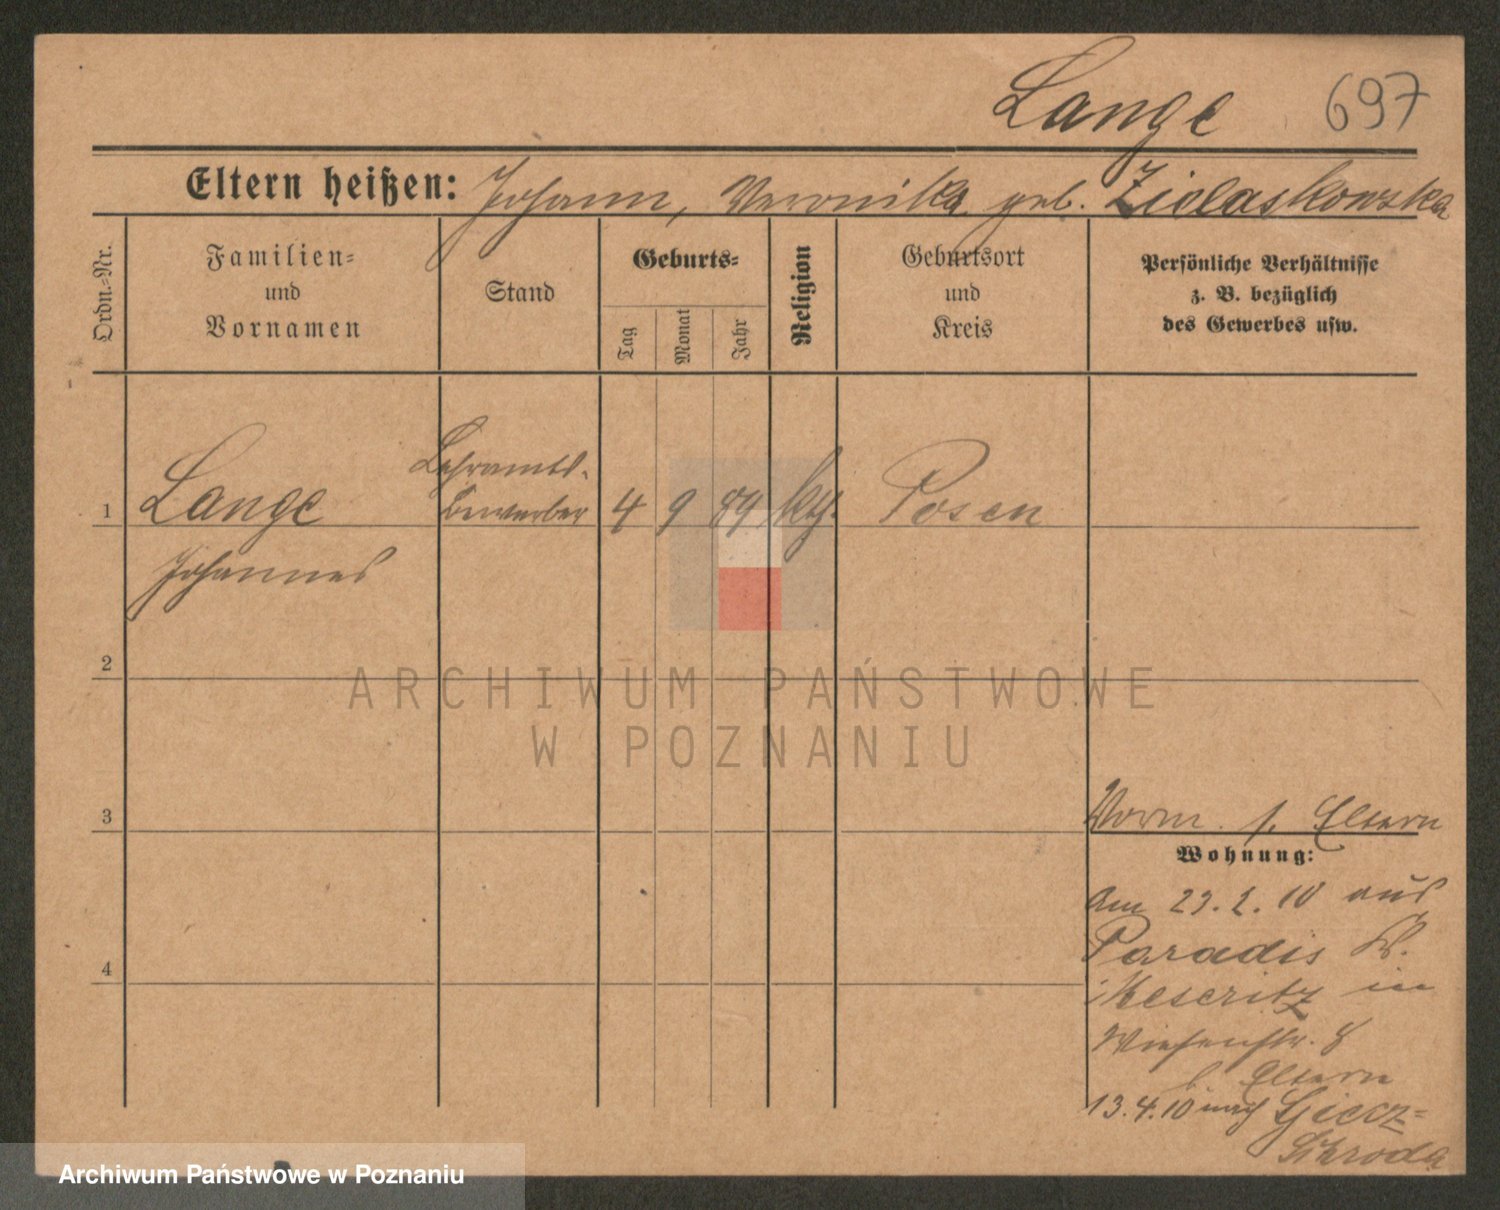 Lange 697
Eltern heißen: Johann, Veronika geb. Ziolaskowska
Ordn.=Nr.
Familien=
und
Vornamen
Stand
Geburts=
Tag
Monat
Jahr
Religion
Geburtsort
und
Kreis
Persönliche Verhältnisse
z. B. bezüglich
des Gewerbes usw.
Lehramts-
1 Lange Bewerber 4 9 89 kth. Posen
Johannes
2
ARCHIWUM PAŃSTWOWE
W POZNANIU
3
Vorm. s. Eltern
Wohnung:
4
am 23.2.10 aus
Paradis K.
Meseritz in
Wiesenstr. 8
b. Eltern
13.4.10 nach Giecz=
Schroda
Archiwum Państwowe w Poznaniu